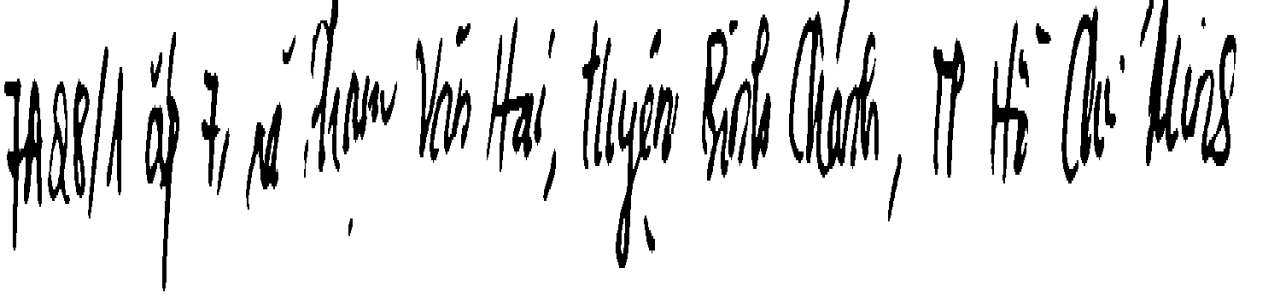 7A88/1 ấp 7, xã Phạm Văn Hai, Huyện Bình Chánh, TP Hồ Chí Minh